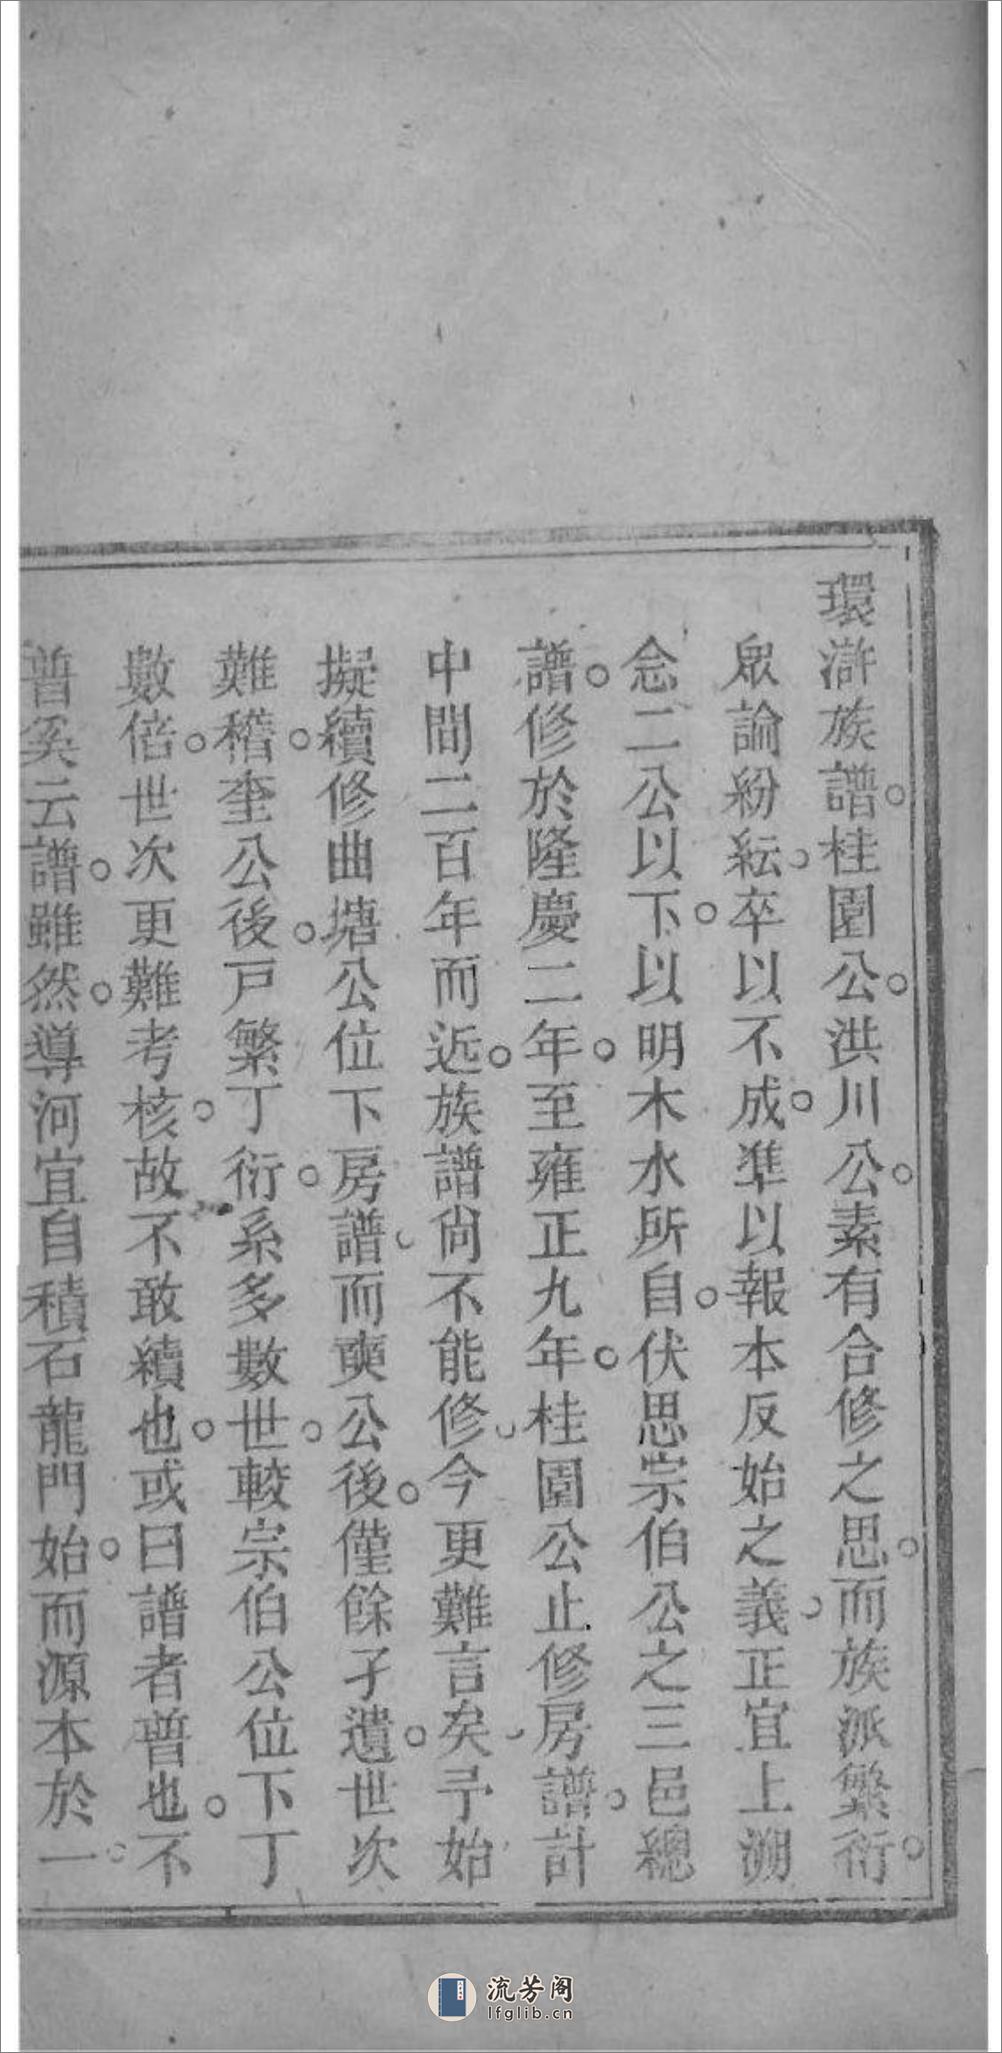 環滸族譜桂園公洪川公素有合修之思而族派繁衍
衆論紛紜卒以不成準以報本反始之義正宜上溯
念二公以下以明木水所自伏思宗伯公之三邑總
譜修於隆慶二年至雍正九年桂園公止修房譜計
中間二百年而近族譜尚不能修今更難言矣予始
擬續修曲塘公位下房譜而奭公後僅餘孑遺世次
難稽奎公後戸繁丁衍系多數世較宗伯公位下丁
數倍世次更難考核故不敢續也或曰譜者普也不
普奚云譜雖然導河宜自積石龍門始而源本於一
流芳阁
lfglib.cn